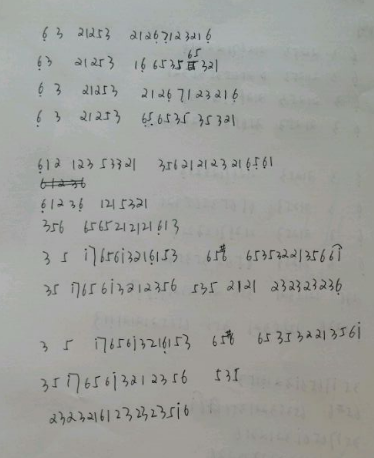 6̣ 3 21253 2126̣7̣123216̣
6̣3 21253 16̣ 6535 65 321
6̣ 3 21253 2126̣7̣123216̣
6̣ 3 21253 656535 35321
6̣12 123 53321 356212123216561
61236
6̣1236̣ 1215321
356 65652121216̣13
3 5 i7656i3216̣153 65# 653532213566i
35 i7656i3212356 535 2121 232323236
3 5 i7656i3216̣153 65# 65353221356i
35i7656i3212356 535
232321612323235i6